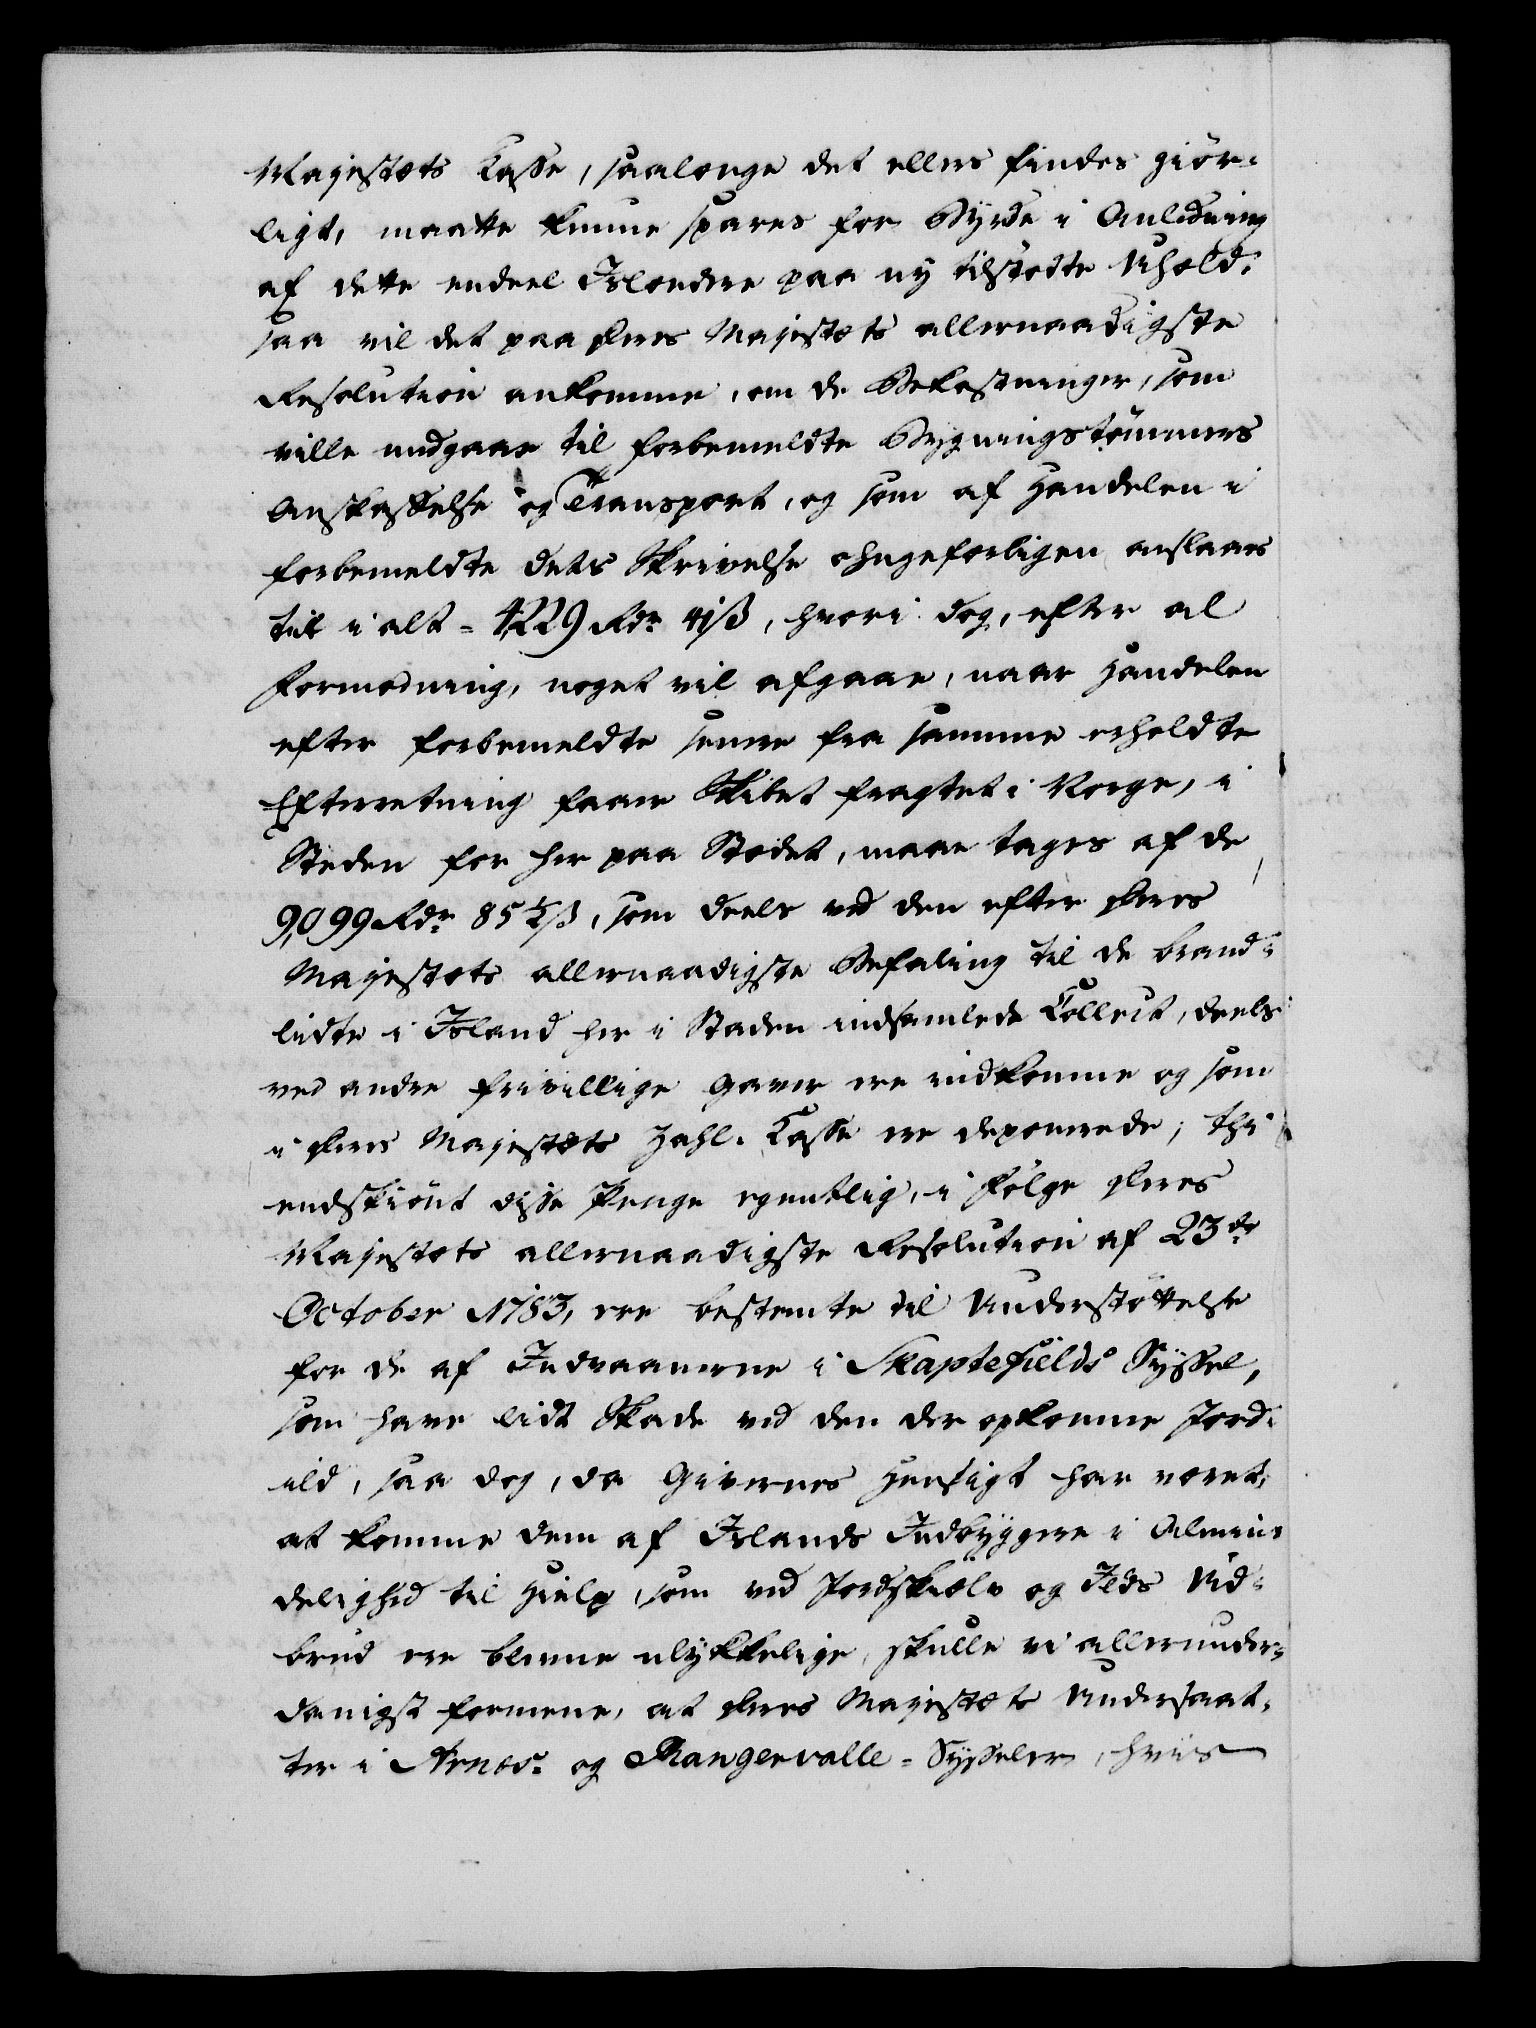 Majestæts Casse, saalænge det ellers findes giør-
ligt, maatte kunne spares for Byrde i Anledning
af dette endeel Islændere paa ny tilstødte Uheld:
saa vil det paa Deres Majestæts allernaadigste
Resolution ankomme, om de Bekostninger, som
ville medgaae til forbemeldte Bygningstømmers
Anskaffelse og Transport, og som af Handelen i
forbemeldte dets Skrivelse ohngefærligen anslaaes
til i alt = 4229 Rdr 41 ß, hvori dog, efter al
Formodning, noget vil afgaae, naar Handelen
efter forbemeldte senere fra samme erholdte
Efterretning faaer Skibet fragtet i Norge, i
Steden for her paa Stedet, maae tages af de
9,099 Rdr 85 ½ ß, som deels ved den efter Deres
Majestæts allernaadigste Befaling til de brand-
lidte i Island her i Staden indsamlede Collect, deels
ved andre frivillige Gaver ere indkomne og som
i Deres Majestæts Zahl-Casse ere deponerede; thi
endskiønt disse Penge egentlig, i Følge Deres
Majestæts allernaadigste Resolution af 23de
October 1783, ere bestemte til Understøttelse
for de af Indvaanerne i Skaptefields Syssel,
som have lidt Skade ved den der opkomne Jord-
ild, saa dog, da Givernes Hensigt har været,
at komme dem af Islands Indbyggere i Almin-
delighed til Hielp, som ved Jordskielv og Ilds Ud-
brud ere blevne ulykkelige, skulle vi allerunder-
danigst formene, at Deres Majestæts Undersaat-
ter i Arnes- og Rangervalle-Sysseler, hvis